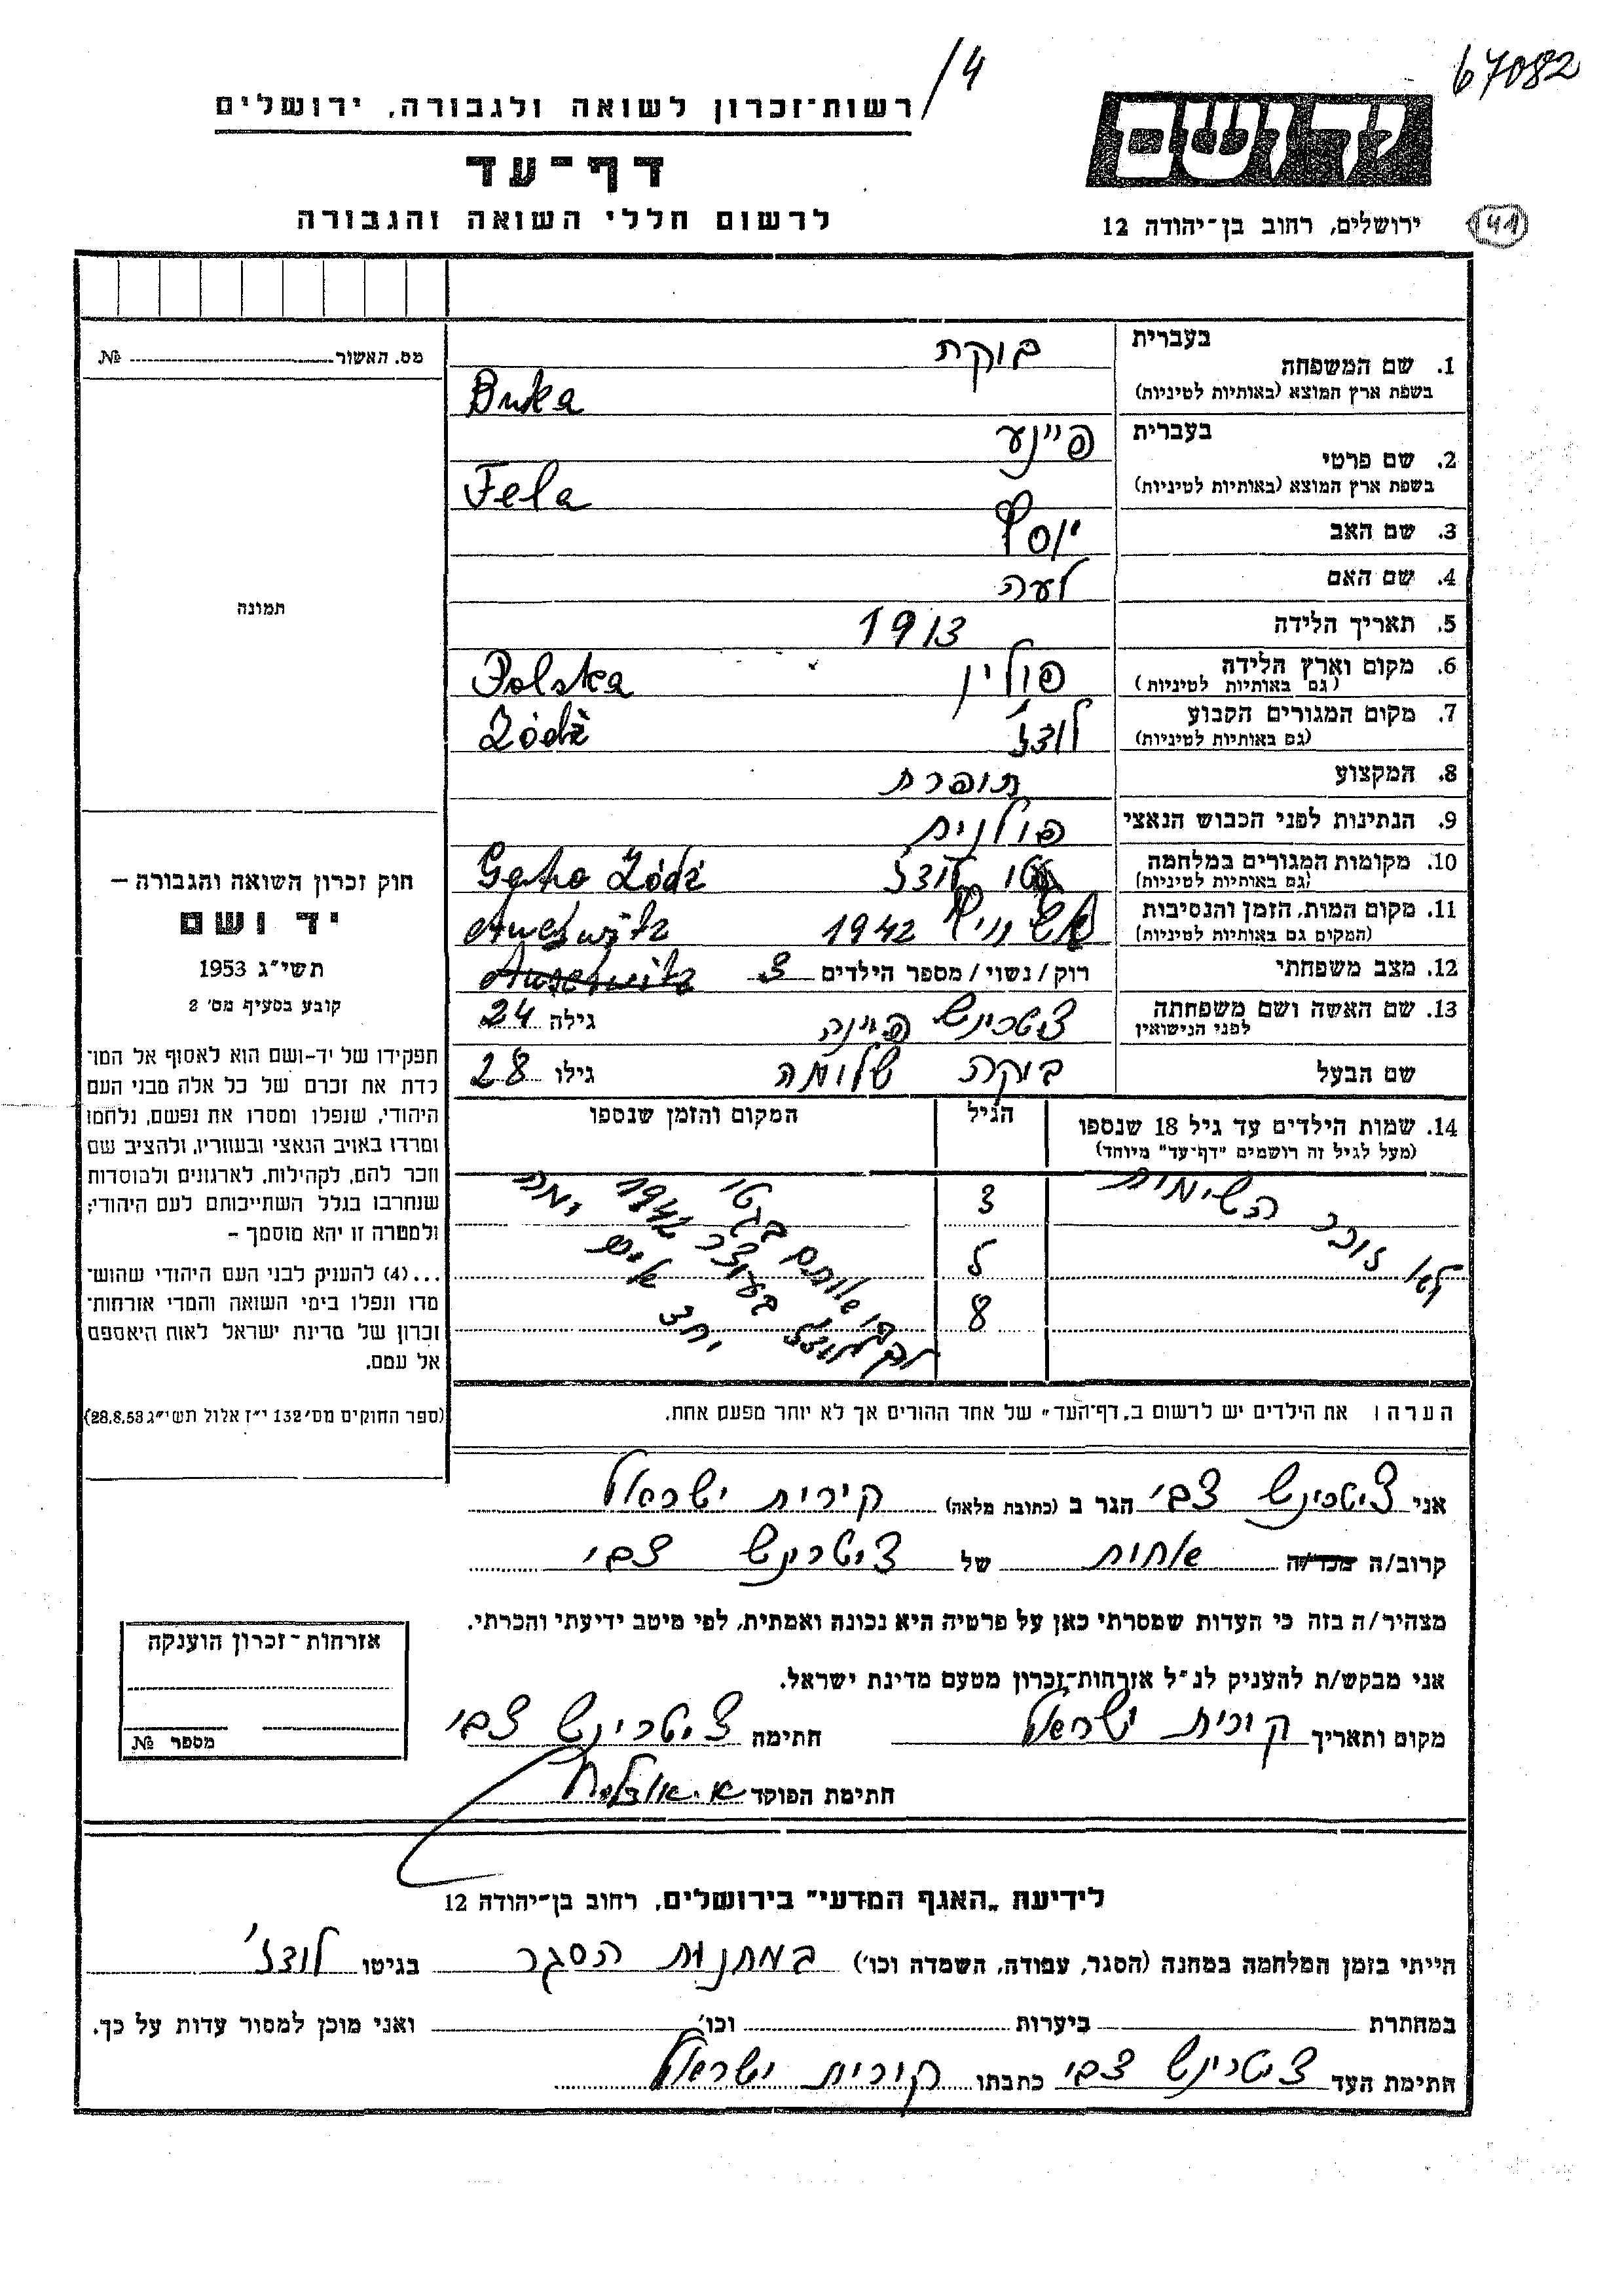 67082
/4
רשות־זכרון לשואה ולגבורה, ירושלים
יד ושם
דף־עד
לרשום חללי השואה והגבורה
ירושלים, רחוב בן־יהודה 12
141
בעברית
בוקה
1. שם המשפחה
בשפת ארץ המוצא (באותיות לטיניות)
Buka
בעברית
2. שם פרטי
בשפת ארץ המוצא (באותיות לטיניות)
Fela
3. שם האב יוסף
4. שם האם לאה
5. תאריך הלידה 1913
6. מקום וארץ הלידה פולין Polska
(גם באותיות לטיניות)
7. מקום המגורים הקבוע לודז' Łódź
(גם באותיות לטיניות)
8. המקצוע תופרת
9. הנתינות לפני הכבוש הנאצי פולנית
10. מקומות המגורים במלחמה גטו לודז Geto Łódź
(גם באותיות לטיניות)
11. מקום המות, הזמן והנסיבות 1942
(המקום גם באותיות לטיניות)
12. מצב משפחתי רוק / נשוי / מספר הילדים 3 Auschwitz
13. שם האשה ושם משפחתה לפני הנישואין ציטרינש פיינה גילה 24
שם הבעל בוקה שלומה גילו 28
14. שמות הילדים עד גיל 18 שנספו
(מעל לגיל זה רושמים "דף־עד" מיוחד)
הגיל
המקום והזמן שנספו
לא זוכר השימות
3
5
8
הערה: את הילדים יש לרשום ב„דף־העד" של אחד ההורים אך לא יותר מפעם אחת.
מס. האשור № 
תמונה
חוק זכרון השואה והגבורה –
יד ושם
תשי"ג 1953
קובע בסעיף מס' 2
תפקידו של יד־ושם הוא לאסוף אל המו־
לדת את זכרם של כל אלה מבני העם
היהודי, שנפלו ומסרו את נפשם, נלחמו
ומרדו באויב הנאצי ובעוזריו, ולהציב שם
וזכר להם, לקהילות, לארגונים ולמוסדות
שנחרבו בגלל השתייכותם לעם היהודי;
ולמטרה זו יהא מוסמך –
...(4) להעניק לבני העם היהודי שהוש־
מדו ונפלו בימי השואה והמרי אזרחות־
זכרון של מדינת ישראל לאות היאספם
אל עמם.
(ספר החוקים מס' 132 י"ז אלול תשי"ג 28.8.53)
אני ציטרינש צבי הגר ב (כתובת מלאה) קירית ישראל
קרוב/ה מכר/ה אחות של ציטרינש צבי
מצהיר/ה בזה כי העדות שמסרתי כאן על פרטיה היא נכונה ואמתית, לפי מיטב ידיעתי והכרתי.
אני מבקש/ת להעניק לנ"ל אזרחות־זכרון מטעם מדינת ישראל.
מקום ותאריך קירית ישראל חתימה ציטרינש צבי
חתימת הפוקד
אזרחות־זכרון הוענקה
מספר №
לידיעת „האגף המדעי" בירושלים, רחוב בן־יהודה 12
הייתי בזמן המלחמה במחנה (הסגר, עבודה, השמדה וכו') במחנות הסגר בגיטו לודז'
במחתרת ביערות וכו' ואני מוכן למסור עדות על כך.
חתימת העד ציטרינש צבי כתבתו קירית ישראל